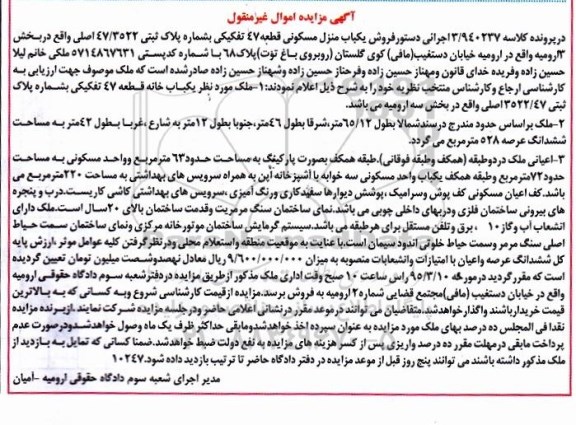 آگهی مزایده اموال غیرمنقول
درپرونده کلاسه ۳/۹۴۰۲۳۷ اجرائی دستورفروش یکباب منزل مسکونی قطعه ۴۷ تفکیکی بشماره پلاک ثبتی ۴۷/۳۵۲۲ اصلی واقع دربخش
۳ارومیه واقع در ارومیه خیابان دستغیب(مافی) کوی گلستان (روبروی باغ توت)پلاک۶۸ با شماره کدپستی ۵۷۱۴۸۶۷۶۳۱ ملکی خانم لیلا
حسین زاده وفریده خدای قانون ومهناز حسین زاده وفرحناز حسین زاده وشهناز حسین زاده صادرشده است که ملک موصوف جهت ارزیابی به
کارشناسی ارجاع وکارشناس منتخب نظریه خود را به شرح ذیل اعلام نمودند:۱-ملک مورد نظر یکباب خانه قطعه ۴۷ تفکیکی بشماره پلاک
ثبتی ۳۵۲۲/۴۷ اصلی واقع در بخش سه ارومیه می باشد.
۲-ملک براساس حدود مندرج درسندشمالا بطول ۶۵/۱۲متر،شرقا بطول ۴۶متر،جنوبا بطول ۱۲متر به شارع ،غربا بطول ۴۲متر به مساحت
ششدانگ عرصه ۵۲۸ مترمربع می گردد.
۳-اعیانی ملک دردوطبقه (همکف وطبقه فوقانی).طبقه همکف بصورت پارکینگ به مساحت حدود۶۳ مترمربع وواحد مسکونی به مساحت
حدود۷۲مترمربع وطبقه همکف یکباب واحد مسکونی سه خوابه با آشپزخانه اپن به همراه سرویس های بهداشتی به مساحت ۲۲۰مترمربع می
باشد.کف اعیان مسکونی کف پوش وسرامیک ،پوشش دیوارها سفیدکاری ورنگ آمیزی ،سرویس های بهداشتی کاشی کاریست.درب و پنجره
های بیرونی ساختمان فلزی ودربهای داخلی چوبی می باشد.نمای ساختمان سنگ مرمریت وقدمت ساختمان بالای ۲۰سال است.ملک دارای
انشعاب آب وگاز۱۰ ،برق وتلفن مستقل برای هرطبقه می باشد.سیستم گرمایش ساختمان موتورخانه مرکزی ونمای ساختمان سمت حیاط
اصلی سنگ مرمر وسمت حیاط خلوتی اندود سیمان است.با عنایت به موقعیت منطقه واستعلام محلی ودرنظرگرفتن کلیه عوامل موثر ،ارزش پایه
کل ششدانگ عرصه واعیان با امتیازات وانشعابات منصوبه به میزان ۹/۶۰۰/۰۰۰/۰۰۰ ریال معادل نهصدوشصت میلیون تومان تعیین گردیده
است که مقررگردید درمورخه ۹۵/۳/۱۰ راس ساعت ۱۰ صبح وقت اداری ملک مذکور ازطریق مزایده دردفترشعبه سوم دادگاه حقوقی ارومیه
واقع در خیابان دستغیب (مافی)مجتمع قضایی شماره۲ارومیه به فروش برسد.مزایده ازقیمت کارشناسی شروع وبه کسانی که به بالاترین
قیمت خریدارباشند واگذارخواهدشد.متقاضیان می توانند درموعد مقرر درنشانی اعلامی حاضر ودرجلسه مزایده شرکت نمایند .ازبرنده مزایده
نقدا فی المجلس ده درصد بهای ملک مورد مزایده به عنوان سپرده اخذ خواهدشدومابقی حداکثر ظرف یک ماه وصول خواهدشدودرصورت عدم
پرداخت مابقی درمهلت مقرر ده درصد واریزی پس از کسر هزینه های مزایده به نفع دولت ضبط خواهدشد.ضمنا کسانی که تمایل به بازدید از
ملک مذکور داشته باشند می توانند پنج روز قبل از موعد مزایده در دفتر دادگاه حاضر تا ترتیب بازدید داده شود.۱۰۲۴۷
مدیر اجرای شعبه سوم دادگاه حقوقی ارومیه -آمیان